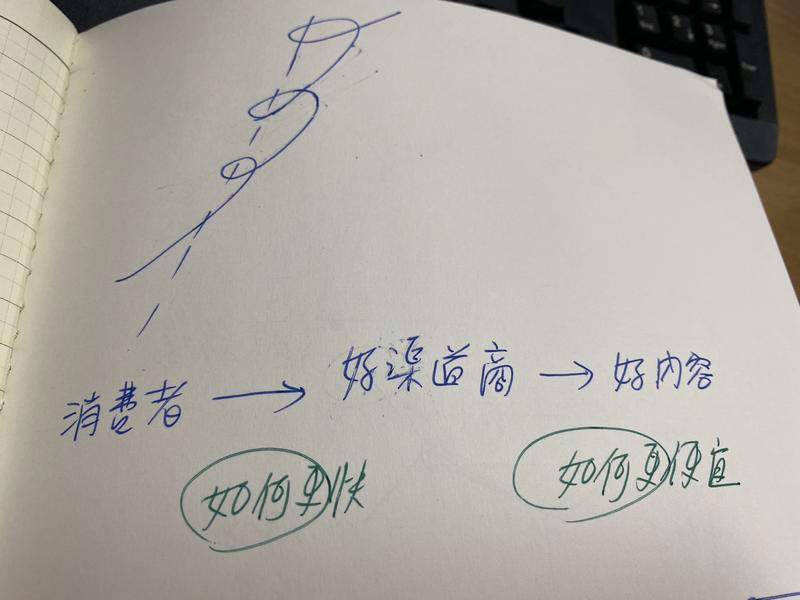 消费者 → 好渠道商 → 好内容
如何更快 如何更便宜